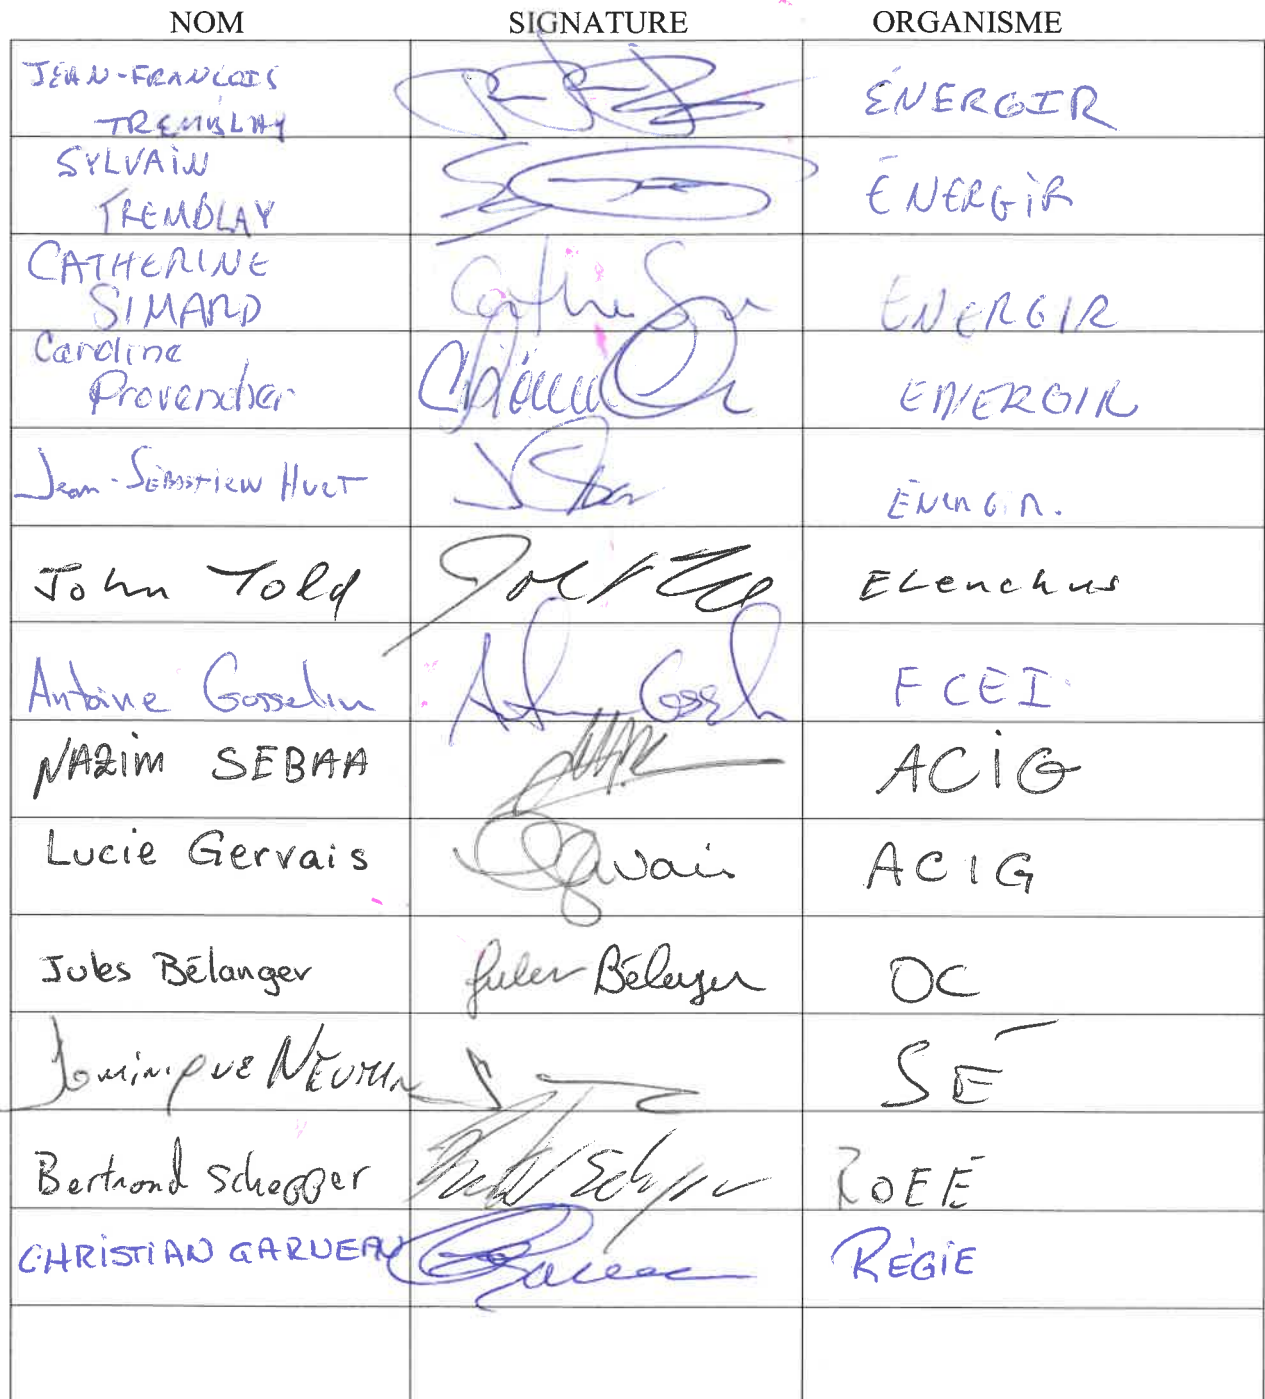 NOM SIGNATURE ORGANISME
JEAN-FRANÇOIS
TREMBLAY ÉNERGIR
SYLVAIN
TREMBLAY ÉNERGIR
CATHERINE
SIMARD ENERGIR
Caroline
Provencher ENERGIR
Jean-Sébastien HUOT ÉNERGIR.
John Todd Elenchus
Antoine Gosselin Antoine Gosselin FCEI
NAZIM SEBAA ACIG
Lucie Gervais Gervais ACIG
Jules Bélanger Jules Bélanger OC
Dominique NEUMAN SÉ
Bertrand Schepper ROEÉ
CHRISTIAN GARNEAU RÉGIE